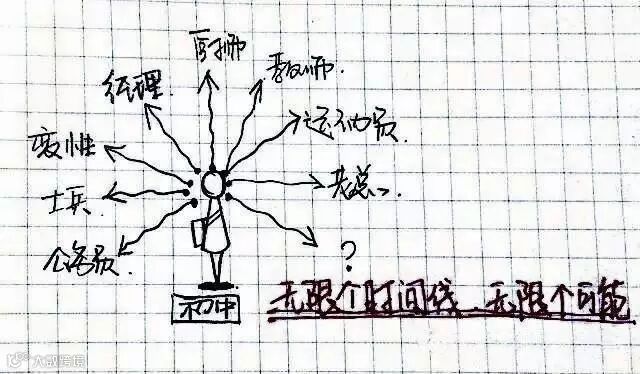 医师
教师
经理
运动员
变性
老总
士兵
公务员
?
无限个时间线 无限个可能
初中
大数跨境